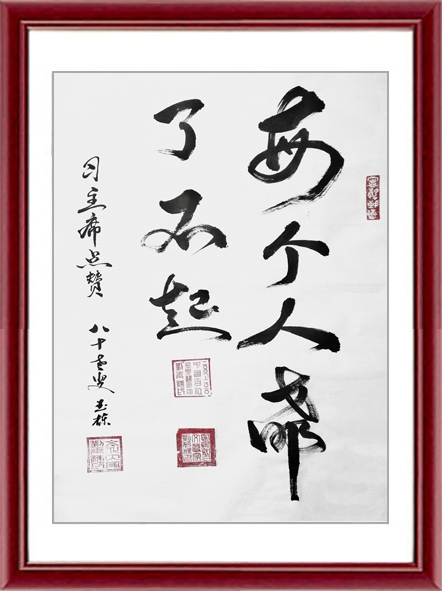 每个人都
了不起
习主席点赞 八十老叟 玉栋